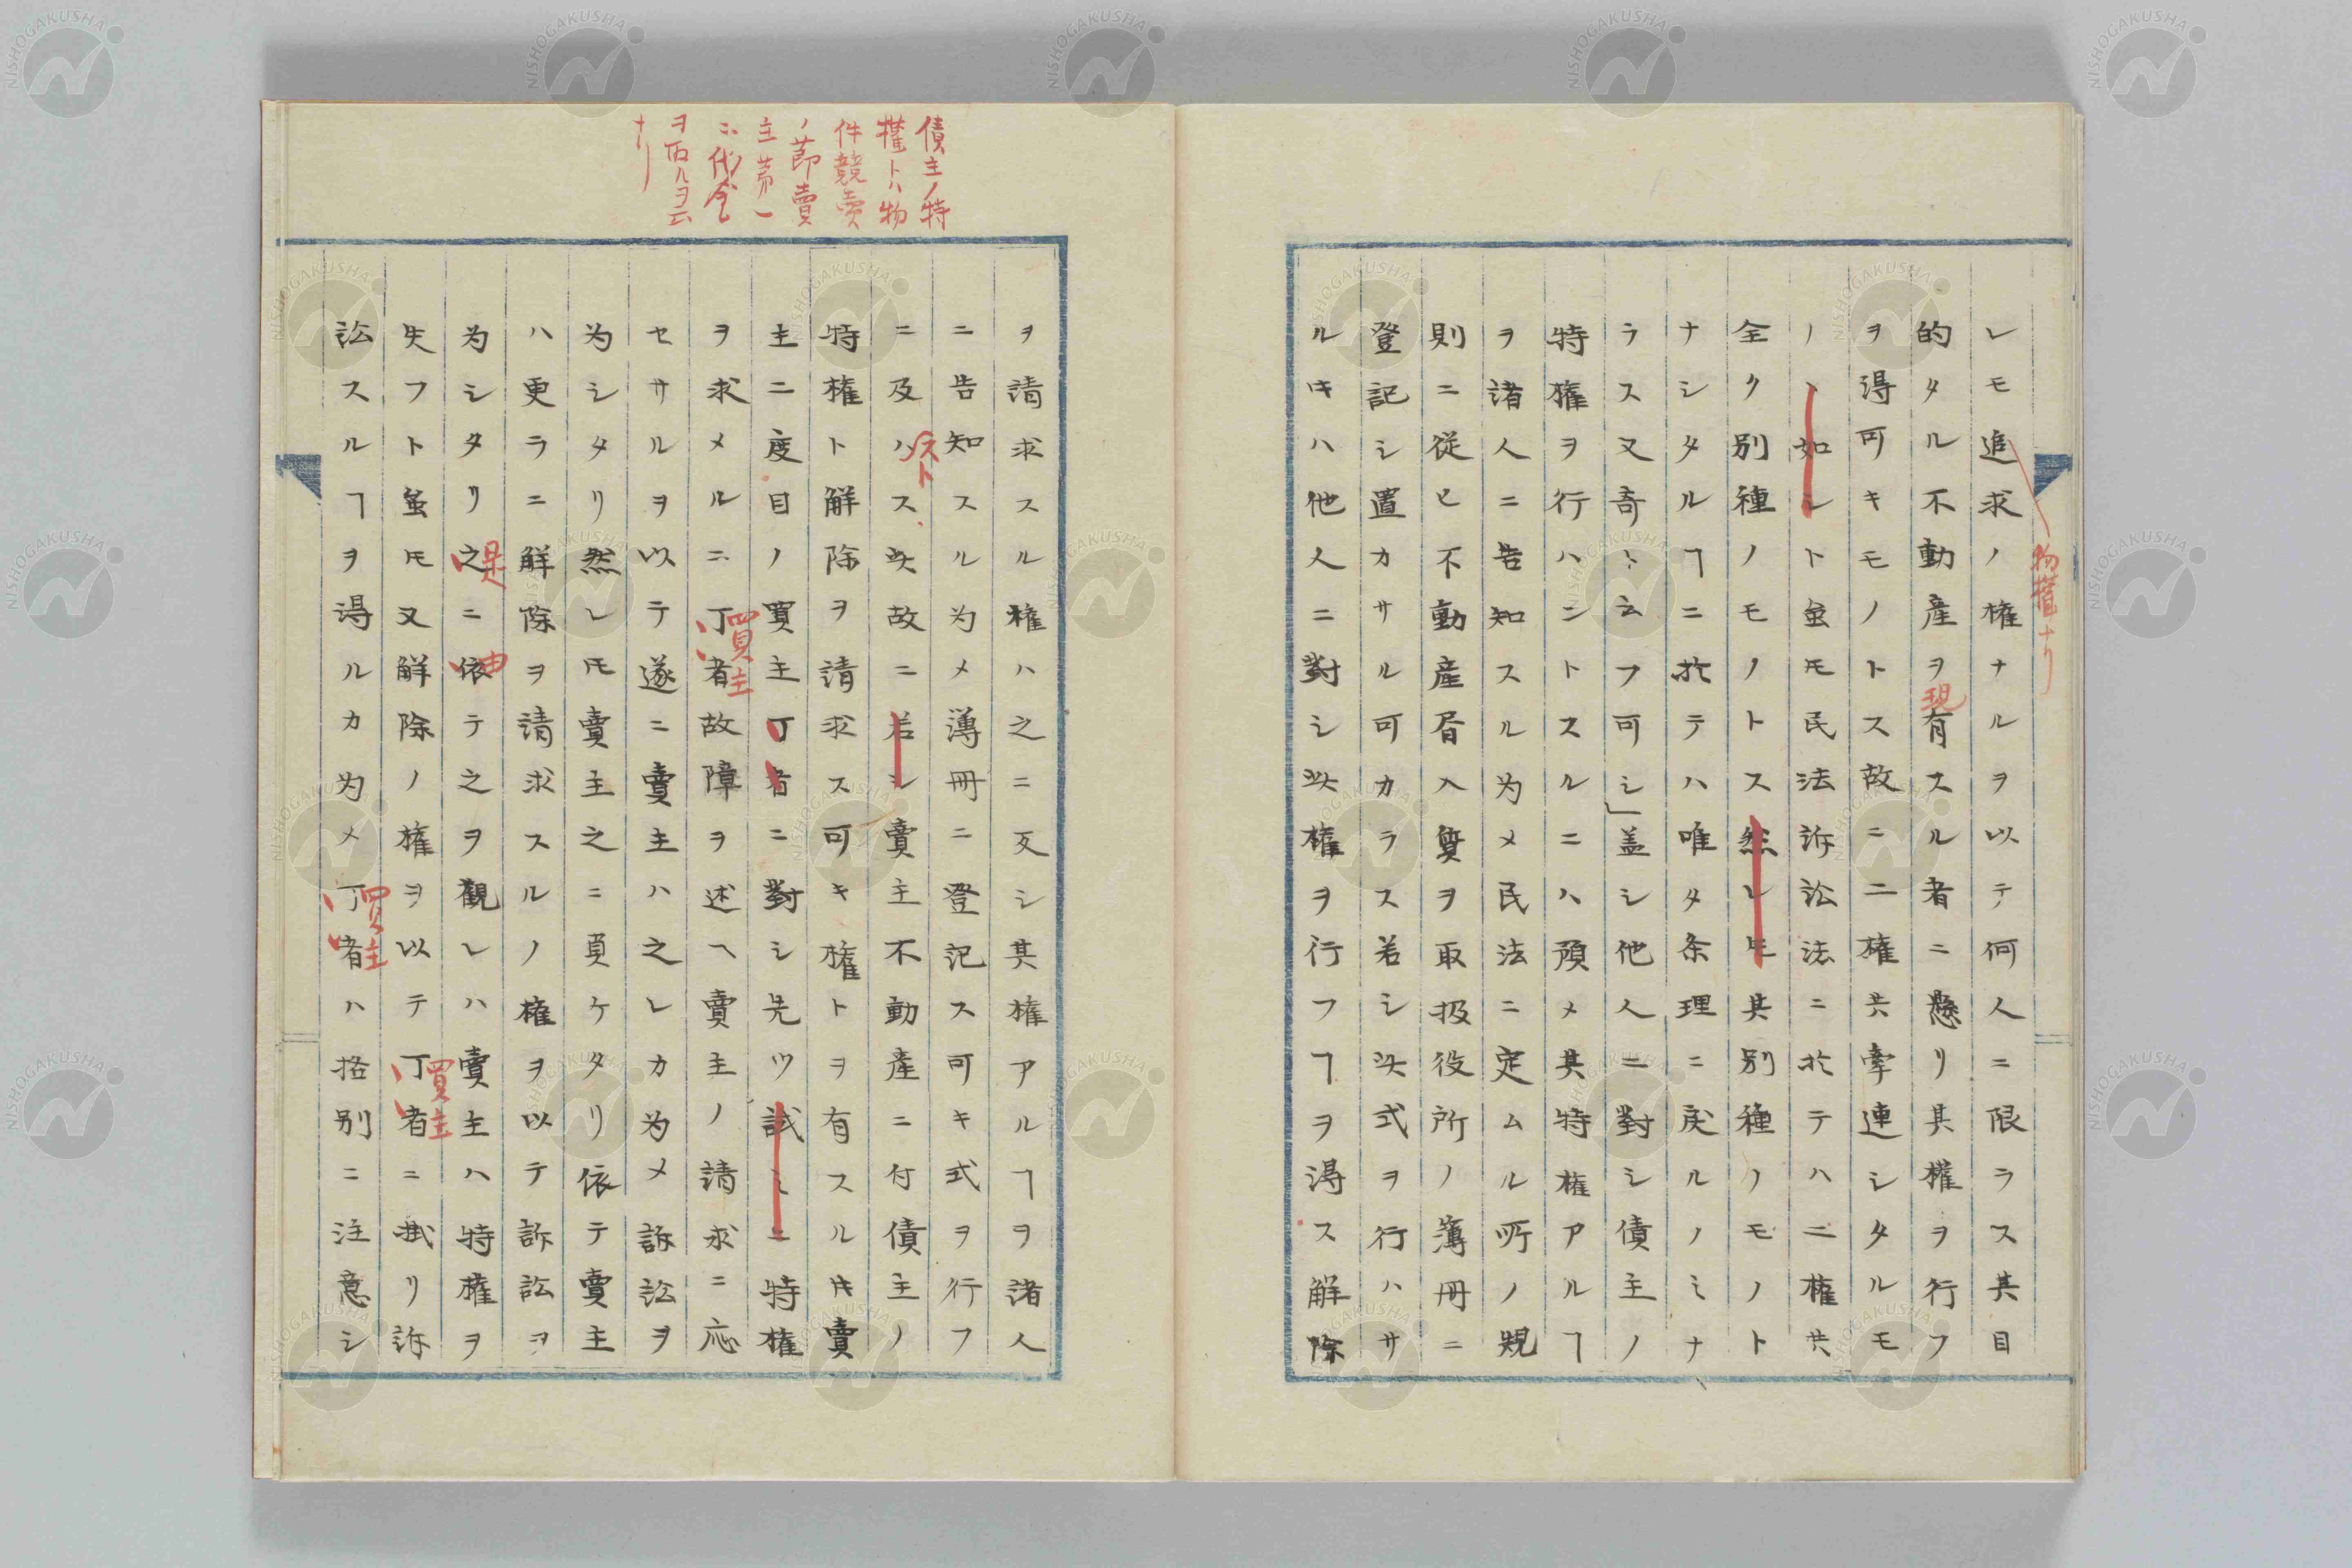 レモ追求ノ権ナルヲ以テ何人ニ限ラス其目
物權ナリ
的タル不動産ヲ有スル者ニ懸リ其権ヲ行フ
現
ヲ得可キモノトス故ニ二権共牽連シタルモ
ノヽ如シト虽𪜈民法訴訟法ニ於テハ二権共
全ク別種ノモノトス然レ𪜈其別種ノモノト
ナシタルヿニ於テハ唯タ条理ニ戻ルノミナ
ラス又奇ミ云フ可シ」盖シ他人ニ對シ債主ノ
特権ヲ行ハントスルニハ預メ其特権アルヿ
ヲ諸人ニ告知スル为メ民法ニ定ムル所ノ規
則ニ従ヒ不動産書入質ヲ取扱役所ノ簿冊ニ
登記シ置カサル可カラス若シ此式ヲ行ハサ
ルキハ他人ニ對シ此権ヲ行フヿヲ得ス解除
債主ノ特
權トハ物
件競賣
ノ節賣
主第一
ニ代金
ヲ取ルヲ云
ナリ
ヲ請求スル権ハ之ニ反シ其権アルヿヲ諸人
ニ告知スル为メ簿冊ニ登記ス可キ式ヲ行フ
ニ及ハス此故ニ若シ賣主不動産ニ付債主ノ
スト
特権ト解除ヲ請求ス可キ権トヲ有スルキ賣
主二度目ノ買主丁者ニ對シ先ツ試ミニ特権
ヲ求メルニ丁者故障ヲ述ヘ賣主ノ請求ニ応
買主
セサルヲ以テ遂ニ賣主ハ之レカ为メ訴訟ヲ
为シタリ然レ𪜈賣主之ニ負ケタリ依テ賣主
ハ更ラニ解除ヲ請求スルノ権ヲ以テ訴訟ヲ
为シタリ之ニ依テ之ヲ觀レハ賣主ハ特権ヲ
是
由
失フト虽𪜈又解除ノ権ヲ以テ丁者ニ掛リ訴
買主
訟スルヿヲ得ルカ为メ丁者ハ格別ニ注意シ
買主